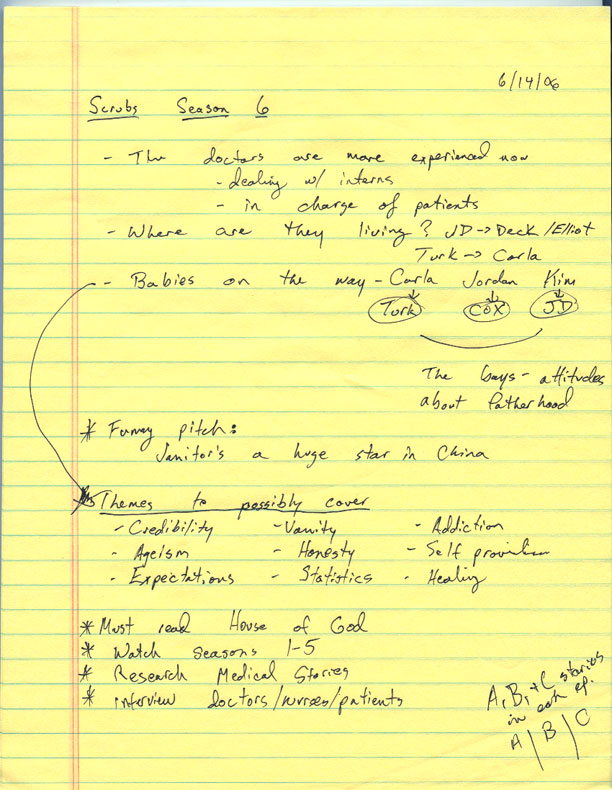 6/14/06
Scrubs Season 6
- The doctors are more experienced now
- dealing w/ interns
- in charge of patients
- Where are they living? JD → Deck/Elliot
Turk → Carla
- Babies on the way - Carla Jordan Kim
Turk COX JD
The Guys - attitudes
about fatherhood
* Funny pitch:
Janitor's a huge star in China
Themes to possibly cover
- Credibility - Vanity - Addiction
- Ageism - Honesty - Self
- Expectations - Statistics - Healing
* Must read House of God
* Watch seasons 1-5
* Research Medical Stories
* interview doctors/nurses/patients
A, B, + C stories
in each ep.
A / B / C